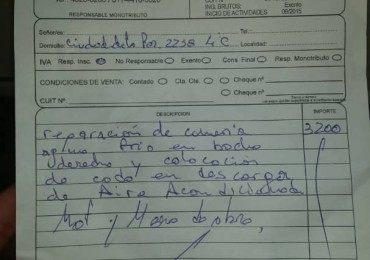 RESPONSABLE MONOTRIBUTO
CUIT N°
ING. BRUTOS: Exento
INICIO DE ACTIVIDADES 09/2015
Señor/es: Tel.
Domicilio: Ciudad de la Paz 2258 4°C Localidad:
IVA: Resp. Insc. No Responsable Exento Cons. Final Resp. Monotributo
CONDICIONES DE VENTA: Contado Cta. Cte. Cheque n°
Cheque n°
CUIT N°
DESCRIPCION IMPORTE
reparación de cañería 3200
agua fría en
y colocación
de codo en descarga
de Aire Acondicionado
Mat y Mano de obra,